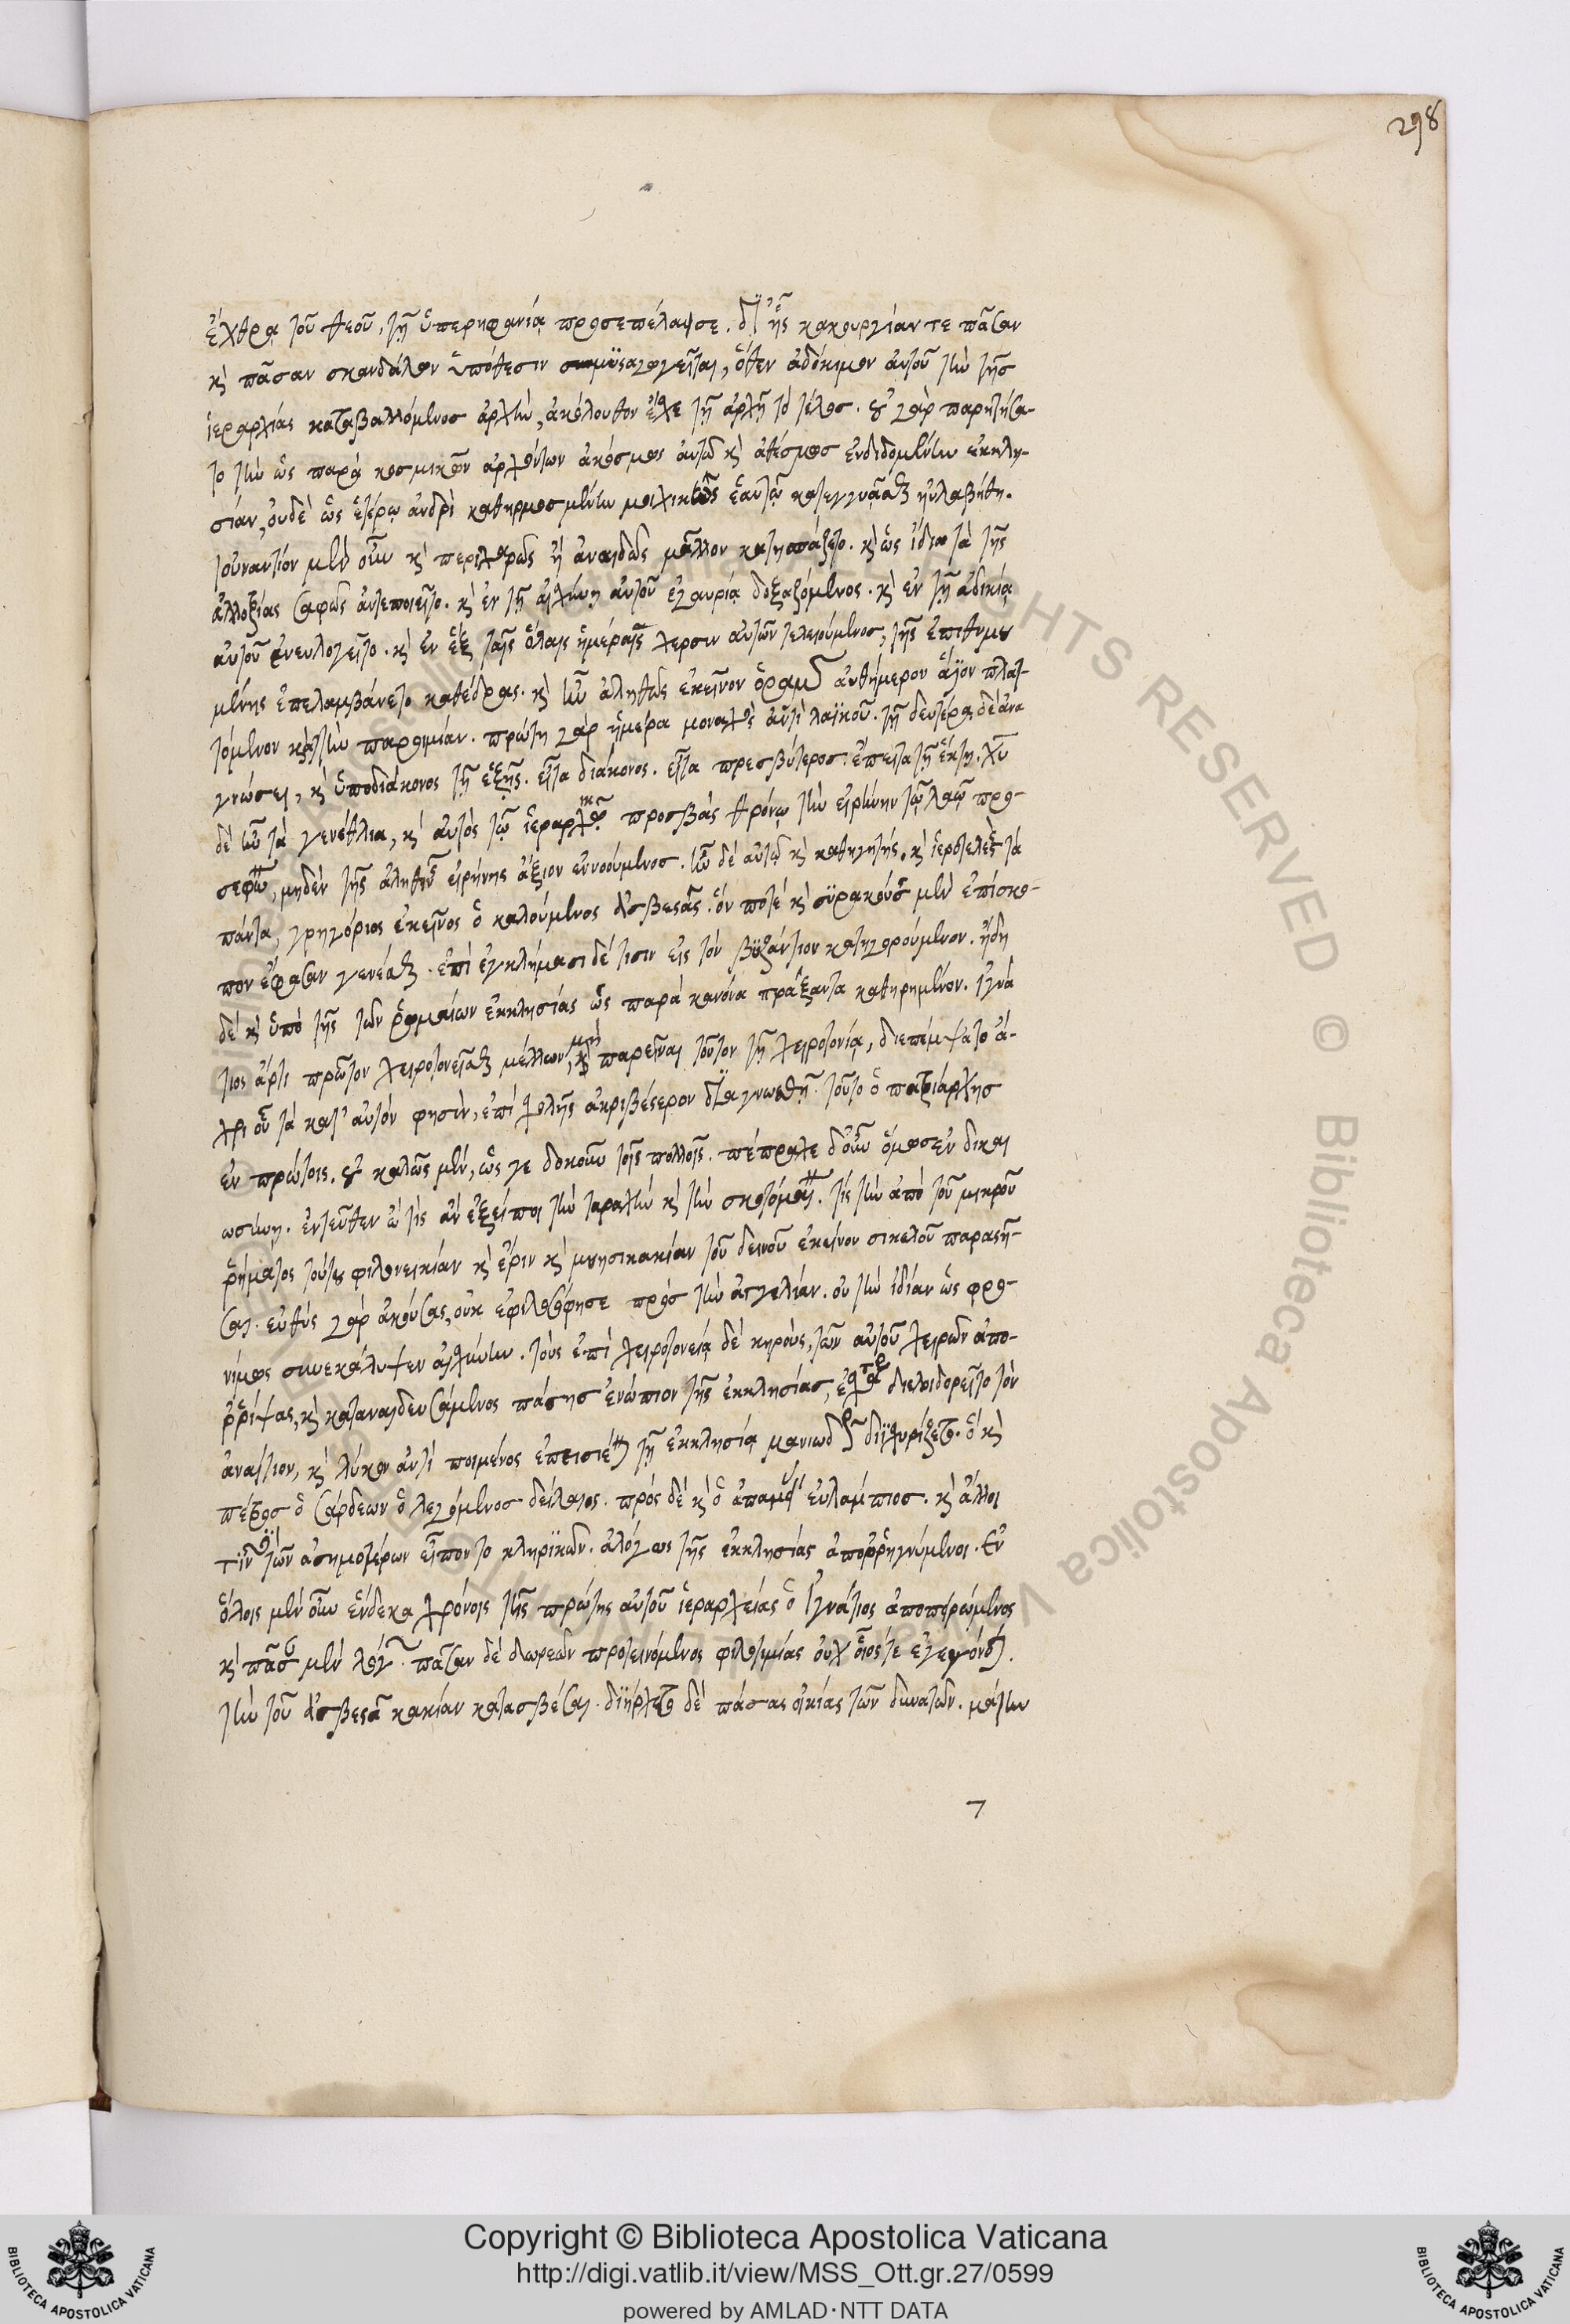 298
ἐχθρᾷ τοῦ θεοῦ, τῇ ὑπερηφανίᾳ προσεπέλασε. δι' ἧς κακουργίαν τε πᾶσαν
κὶ πᾶσαν σκανδάλων ὑπόθεσιν ὅθεν ἀδόκιμον αὐτοῦ τὴν τῆς
ἱεραρχίας καταβαλλόμενος ἀρχὴν, ἀκόλουθον ἔχε τῇ ἀρχῇ τὸ τέλος. οὐ γὰρ παρῃτήσα-
το τὴν ὡς παρὰ κοσμικῶν ἀρχόντων ἀκόσμως αὐτῷ κὶ ἀθέσμως ἐνδιδομένην ἐκκλη-
σίαν, οὐδὲ ὡς ἑτέρῳ ἀνδρὶ καθηρμοσμένην μοιχικῶς ἑαυτῷ κατεγγυᾶσθαι ηὐλαβήθη.
τοὐναντίον μὲν οὖν κὶ περιχαρῶς ἢ ἀναιδῶς μᾶλλον κατησπάζετο. κὶ ὡς ἴδια τὰ τῆς
ἀλλοτρίας σαφῶς ἀντεποιεῖτο. κὶ ἐν τῇ αἰσχύνῃ αὐτοῦ ἐγαυρία δοξαζόμενος. κὶ ἐν τῇ ἀδικίᾳ
αὐτοῦ ἐνευλογεῖτο. κὶ ἐν ἓξ ταῖς ὅλαις ἡμέραις χερσὶν αὐτῶν τελειούμενος, τῆς ἐπιθυμου
μένης ἐπελαμβάνετο καθέδρας. κὶ ἦν ἀληθῶς ἐκεῖνον ὁρᾶσθαι αὐθήμερον ἅγιον πλατ-
τόμενον κατὰ τὴν παροιμίαν. πρώτῃ γὰρ ἡμέρα μοναχὸς ἀντὶ λαϊκοῦ. τῇ δευτέρᾳ δὲ ἀνα
γνώστης, κὶ ὑποδιάκονος τῇ ἑξῆς. εἶτα διάκονος. εἶτα πρεσβύτερος. ἔπειτα τῇ ἕκτῃ. χυ
δὲ ἦν τὰ γενέθλια, κὶ αὐτὸς τῷ ἱεραρχικῷ προσβὰς θρόνῳ τὴν εἰρήνην τῷ λαῷ προ-
σεφώνει, μηδὲν τῆς ἀληθοῦς εἰρήνης ἄξιον ἐννοούμενος. ἦν δὲ αὐτῷ κὶ καθηγητής. κὶ ἱεροτελεστὴς τὰ
πάντα, γρηγόριος ἐκεῖνος ὁ καλούμενος ἀσβεστᾶς. ὅν ποτέ κὶ συρακούσης μὲν ἐπίσκο-
πον ἔφασαν γενέσθαι. ἐπὶ ἐγκλήμασι δέ τισιν εἰς τὸν βυζάντιον κατηγορούμενον. ἤδη
δὲ κὶ ὑπὸ τῆς τῶν ῥωμαίων ἐκκλησίας ὡς παρὰ κανόνα πράξαντα καθῃρημένον. ἰγνά
τιος ἄρτι πρῶτον χειροτονεῖσθαι μέλλων, μὴ παρεῖναι τοῦτον τῇ χειροτονίᾳ, διεπέμψατο ἄ-
χρι οὗ τὰ κατ' αὐτόν φησιν, ἐπὶ σχολῆς ἀκριβέστερον διαγνωσθῇ. τοῦτο ὁ πατριάρχης
ἐν πρώτοις. οὐ καλῶς μὲν, ὥς γε δοκοῦν τοῖς πολλοῖς. πέπραχε δ' οὖν ὅμως ἐν δικαι
ωσύνῃ. ἐντεῦθεν ὦ τίς ἂν ἐξείποι τὴν ταραχὴν κὶ τὴν σκοτόμαιναν. τίς τὴν ἀπὸ τοῦ μικροῦ
ῥήματος τούτου φιλονεικίαν κὶ ἔριν κὶ μνησικακίαν τοῦ δεινοῦ ἐκείνου σικελοῦ παραστῆ-
σαι. εὐθὺς γὰρ ἀκούσας, οὐκ ἐφιλοσόφησε πρὸς τὴν ἀγγελίαν. οὐ τὴν ἰδίαν ὡς φρο-
νίμως συνεκάλυψεν αἰσχύνην. τοὺς ἐπὶ χειροτονείᾳ δὲ κηροὺς, τῶν αὐτοῦ χειρῶν ἀπο-
ρρίψας, κὶ καταναιδευσάμενος πάσης ἐνώπιον τῆς ἐκκλησίας, διελοιδορεῖτο τὸν
ἀναίτιον, κὶ λύκον ἀντὶ ποιμένος ἐπεισιέναι τῇ ἐκκλησίᾳ μανιωδῶς διϊσχυρίζετο. ὁ κὶ
πέτρος ὁ σάρδεων ὁ λεγόμενος δείλαιος. πρὸς δὲ κὶ ὁ ἀπαμείας εὐλάμπιος. κὶ ἄλλοι
τινὲς τῶν ἀσημοτέρων εἵποντο κληρικῶν. ἀλόγως τῆς ἐκκλησίας ἀπορρηγνύμενοι. ἐν
ὅλοις μὲν οὖν ἕνδεκα χρόνοις τῆς πρώτης αὐτοῦ ἱεραρχείας ὁ ἰγνάτιος ἀποπειρώμενος
κὶ πᾶσι μὲν λόγοις. πᾶσαν δὲ δωρεῶν προτεινόμενος φιλοτιμίας οὐχ οἷός τε ἐγεγόνει.
τὴν τοῦ ἀσβεστᾶ κακίαν κατασβέσαι. διήρχετο δὲ πάσας οἰκίας τῶν δυνατῶν. μάτην
Copyright © Biblioteca Apostolica Vaticana
http://digi.vatlib.it/view/MSS_Ott.gr.27/0599
powered by AMLAD·NTT DATA